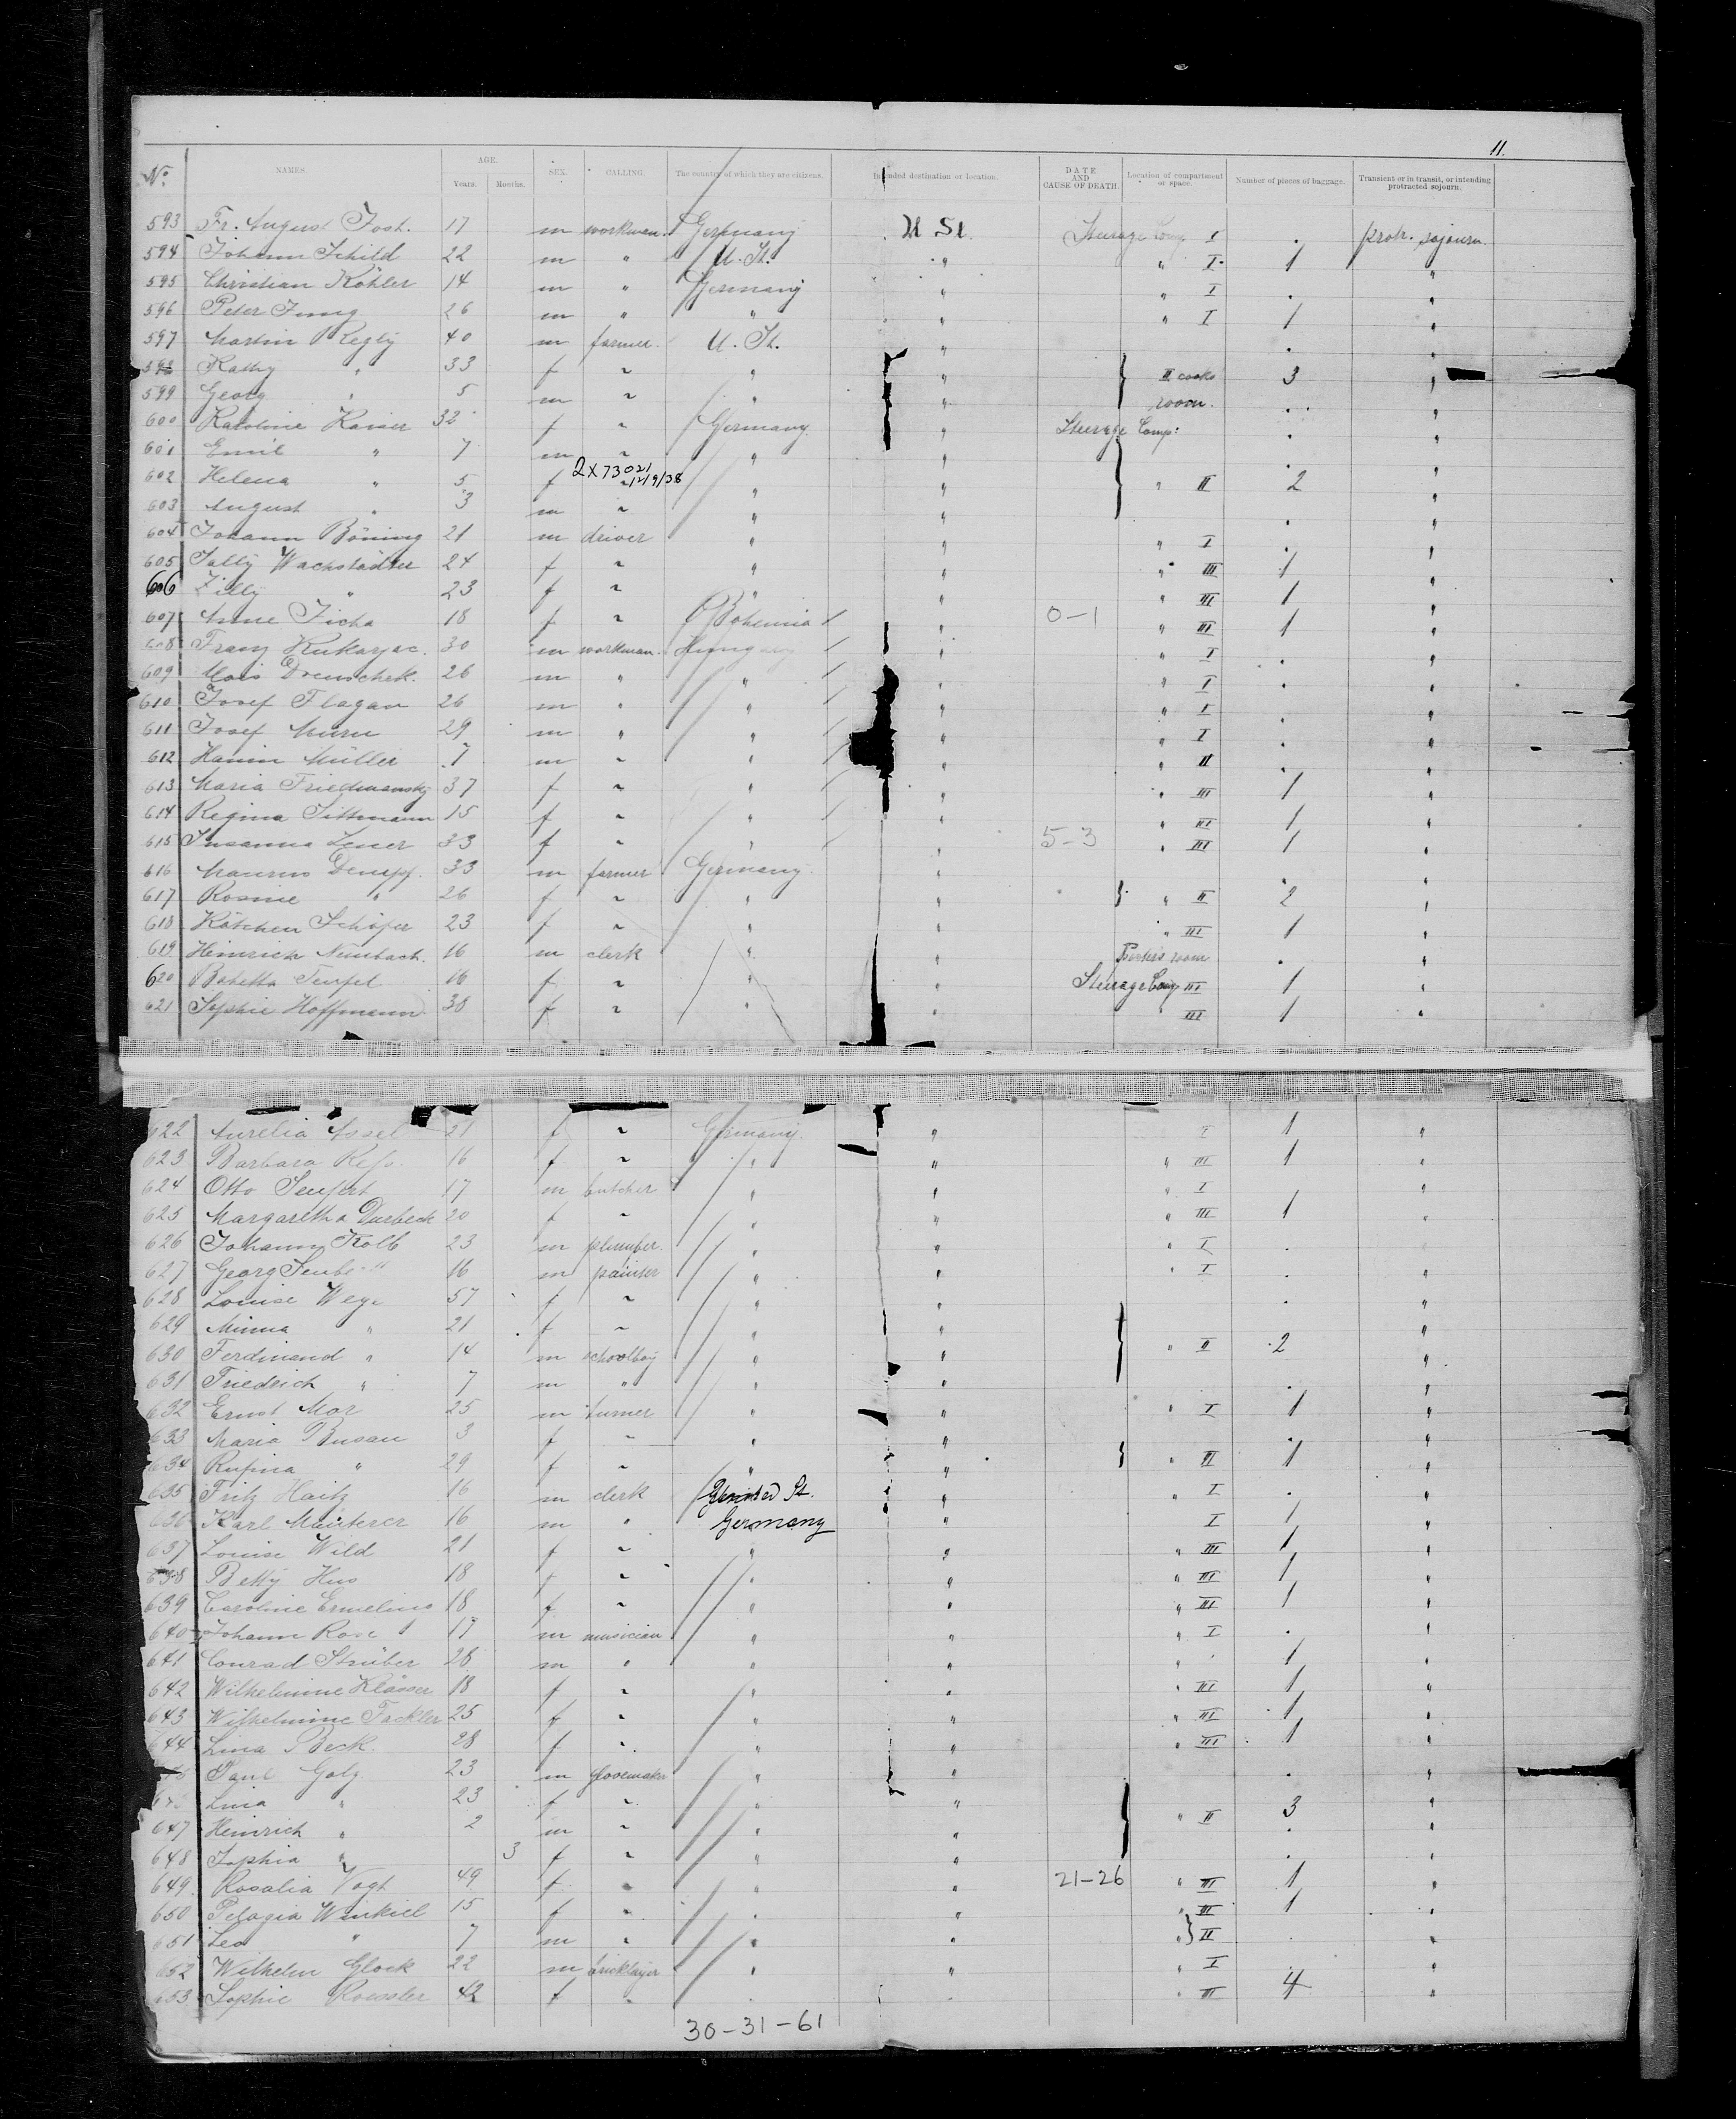 11.
No. NAMES. AGE. Years. Months. SEX. CALLING. The country of which they are citizens. Intended destination or location. DATE AND CAUSE OF DEATH. Location of compartment or space. Number of pieces of baggage. Transient or in transit, or intending protracted sojourn.
593 Fr. August Jost. 17 m workman. Germany U St. Steerage Comp I . protr. sojourn.
594 Johann Schild 22 m " U. St. " " I. 1
595 Christian Köhler 14 m " Germany " " I . "
596 Peter Jung 26 m " " " " I 1 "
597 Martin Regly 40 m farmer. U. St. " . "
598 Kathy " 33 f ~ " " } II cooks 3 "
599 Georg " 5 m ~ " " room. . "
600 Karoline Kaiser 32 f ~ Germany " Steerage Comp: . "
601 Emil " 7 m ~ " " . "
2X73021
602 Helena " 5 f ~ 12/9/38 " " } " II 2 "
603 August " 3 m ~ " " . "
604 Johann Böning 21 m driver " " " I . "
605 Sally Wachstädter 24 f ~ " " " III 1 "
606 Zilly " 23 f ~ " " " III 1 "
607 Anne Ficha 18 f ~ Bohemia " 0-1 " III 1 "
608 Franz Kukarjac. 30 m workman. Hungary " " I . "
609 Alois Drenschek. 26 m " " " " I . "
610 Josef Flagan 26 m " " " " I . "
611 Josef Muru 29 m " " " " I . "
612 Hanin Müller 7 m ~ " " " II . "
613 Maria Friedmansky 37 f ~ " " " III 1 "
614 Regina Sittmann 15 f ~ " " " III 1 "
615 Susanna Lener 33 f ~ " " 5-3 " III 1 "
616 33 m farmer Germany " . "
617 Rosine " 26 f ~ " " } " II 2 "
618 Kätchen Schäfer 23 f ~ " " " III 1 "
619 Heinrich Numbach. 16 m clerk " " Porters room . "
620 Babetta Teufel 16 f ~ " " Steerage Comp III 1 "
621 Sophie Hoffmann 38 f ~ " " III 1 "
622 Aurelia Assel 21 f ~ Germany. " I 1 "
623 Barbara 16 f ~ " " " III 1 "
624 Otto Seufert 17 m butcher " " " I "
625 Margaretha Durbeck 20 f ~ " " " III 1 "
626 Johann Kolb 23 m plumber. " " " I .
627 Georg 16 m painter " " " I . "
628 Louise Wege 57 f ~ " " . "
629 Minna " 21 f ~ " " "
630 Ferdinand " 14 m schoolboy " " } " II 2 "
631 Friedrich " 7 m " " " . "
632 Ernst Mor 25 m turner " " " I 1 "
633 Maria Busan 3 f ~ " " . "
634 Rufina " 29 f ~ " " } " II 1 "
635 Fritz Haitz 16 m clerk United St. " " I . "
636 Karl Meuterer 16 m " Germany " I 1 "
637 Louise Wild 21 f ~ " " " III 1 "
638 Betty Hus 18 f ~ " " " III 1 "
639 Caroline Ermeling 18 f ~ " " " III 1 "
640 Johann Rose 17 m musician " " " I . "
641 Conrad Strüber 28 m " " " " 1 "
642 Wilhelmine Klässer 18 f ~ " " " III 1 "
643 Wilhelmine Fackler 25 f ~ " " " III 1 "
644 Lina Beck. 28 f ~ " " " III 1 "
Paul Golz 23 m glovemaker " " . "
Lina " 23 f ~ " " "
647 Heinrich " 2 m ~ " " } " II 3 "
648 Sophia " 3 f ~ " " . "
649. Rosalia Vogt 49 f ~ " " 21-26 " III 1 "
650 Pelagia Winkiel 15 f ~ " " " III 1 "
651 Leo " 7 m ~ " " " } II . "
652 Wilhelm Glock 22 m bricklayer " " " I "
653 Sophie Roessler 42 f ~ " " " III 4 "
30-31-61